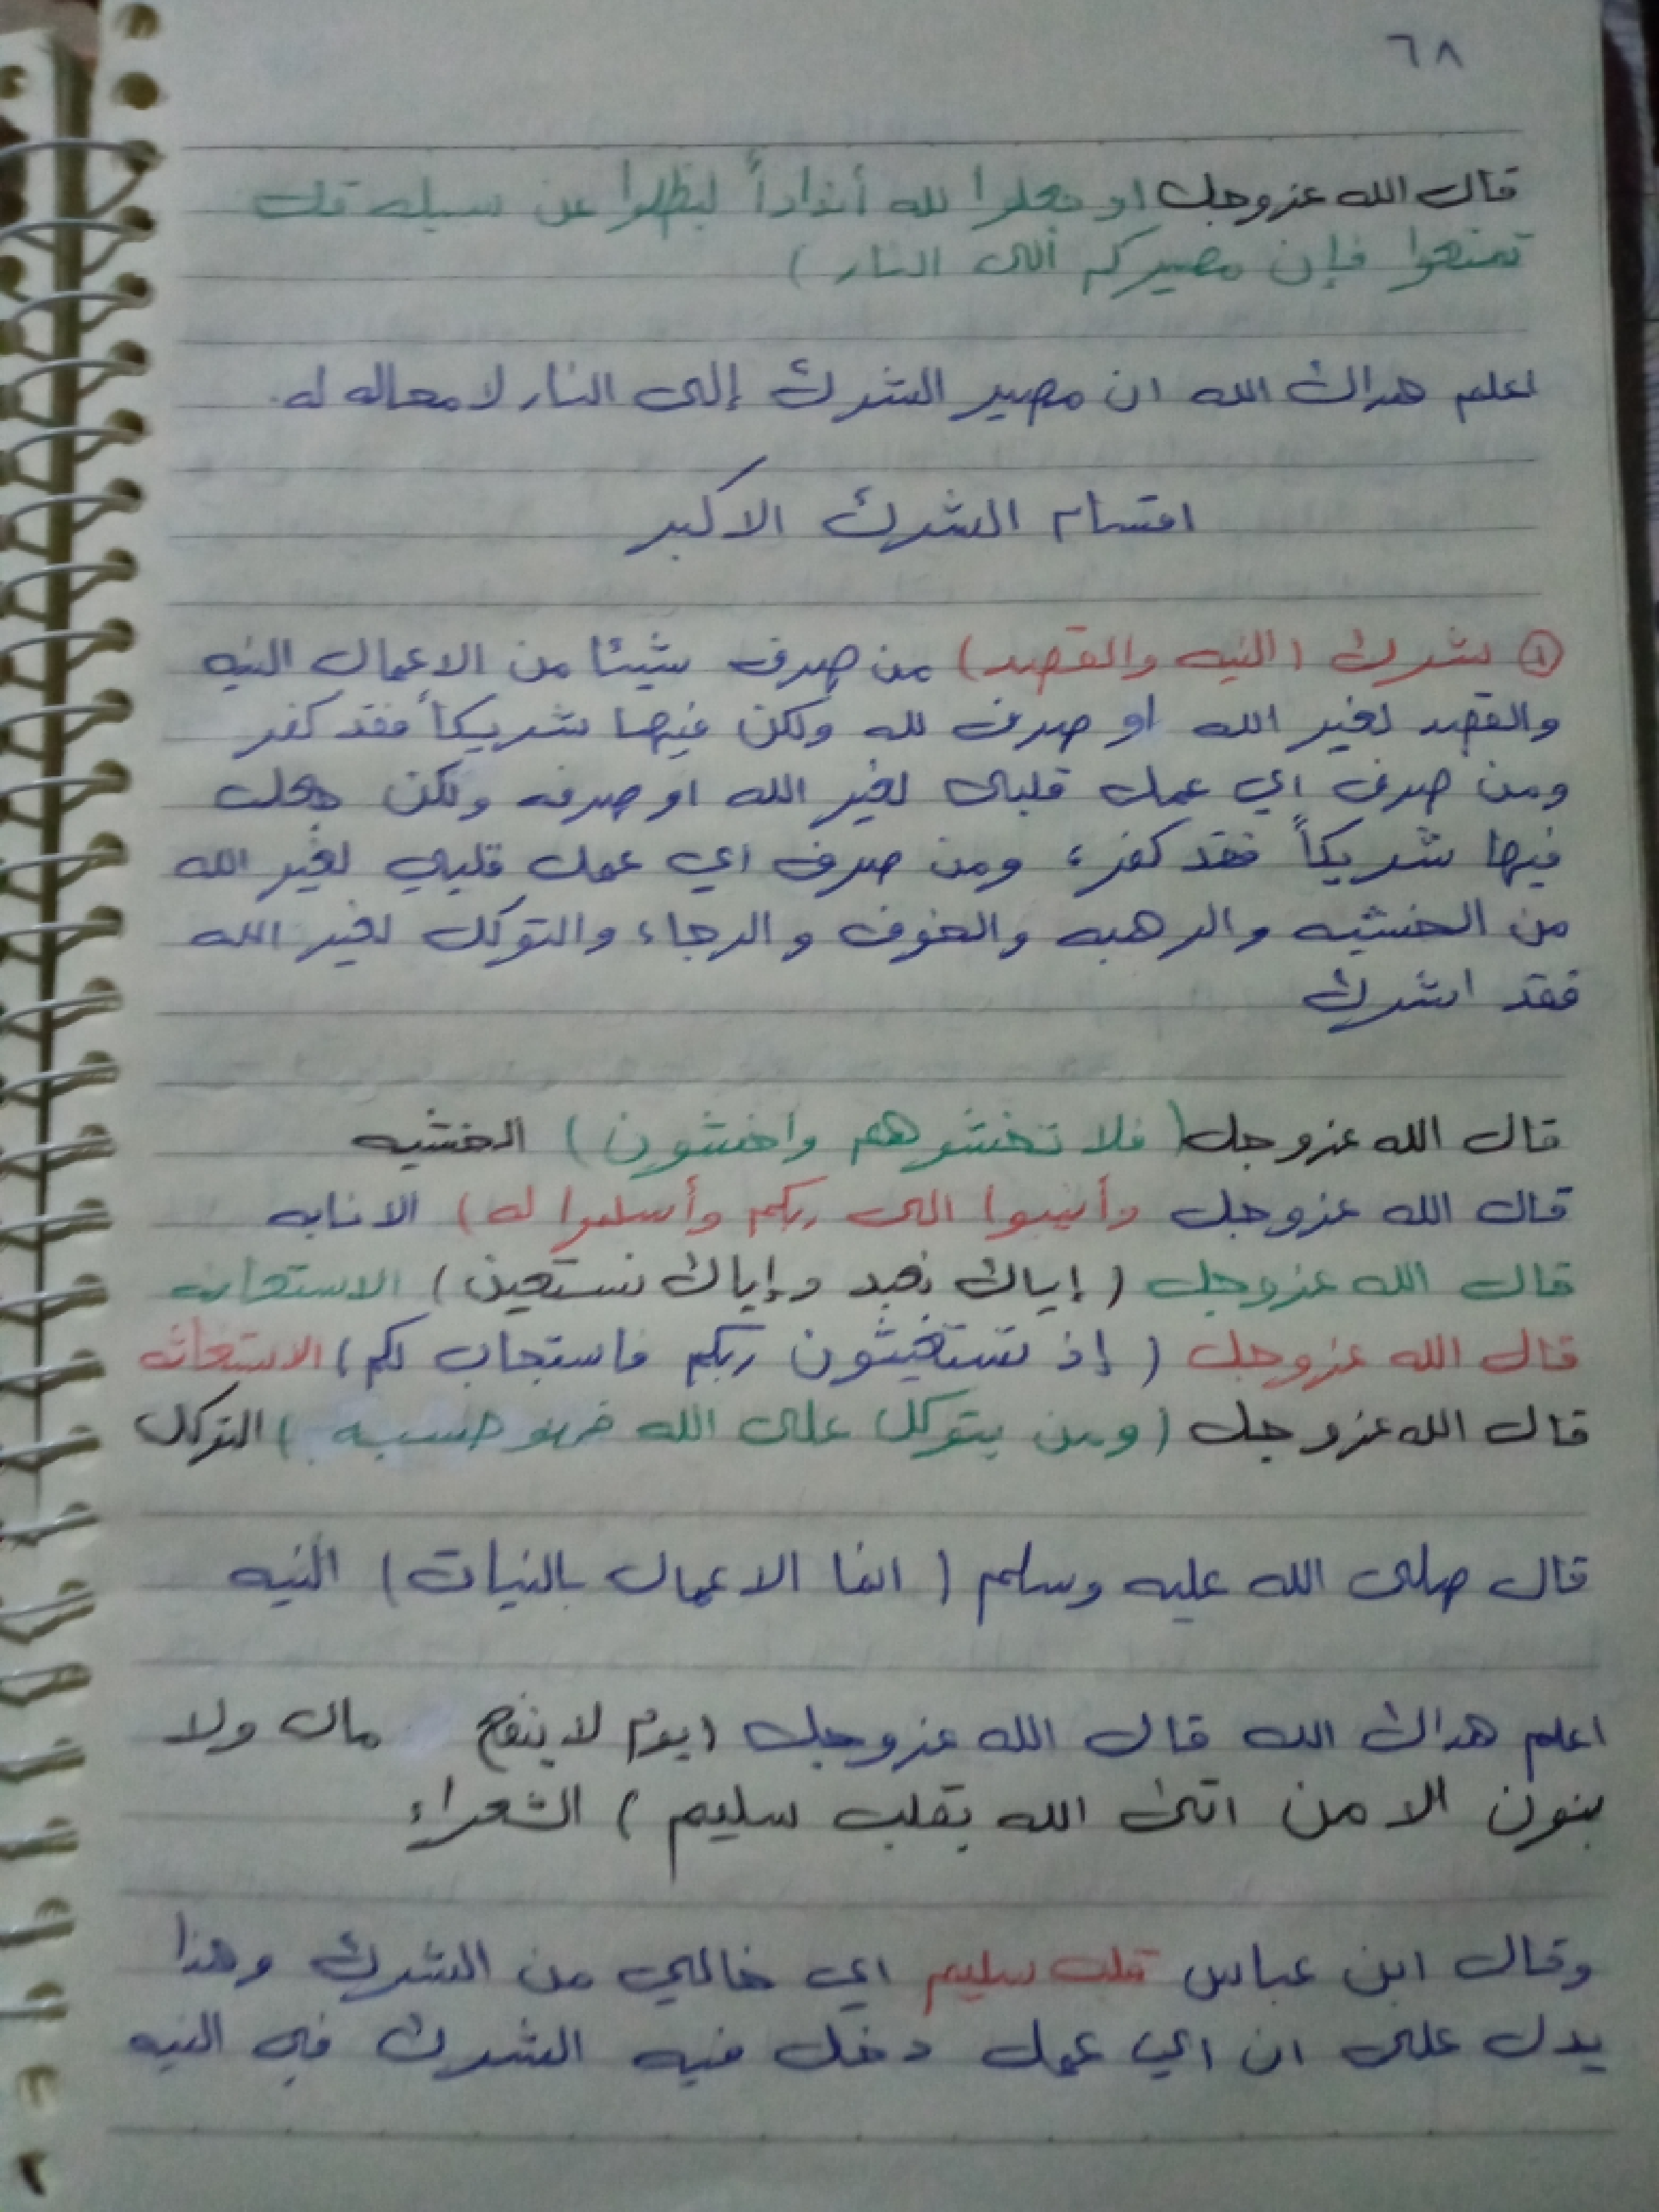 ٦٨
قال الله عزوجل (وجعلوا لله أنداداً ليظلوا عن سبيله قل
تمتعوا فإن مصيركم الى النار)
اعلم هداك الله ان مصير الشرك إلى النار لا محاله له.
اقسام الشرك الاكبر
① شرك (النيه والقصد) من صرف شيئا من الاعمال النيه
والقصد لغير الله او صرف لله ولكن فيها شريكاً فقد كفر
ومن صرف اي عمل قلبى لغير الله او صرفه ولكن جعل
فيها شريكاً فقد كفر؛ ومن صرف اي عمل قلبي لغير الله
من الخشيه والرهبه والخوف والرجاء والتوكل لغير الله
فقد اشرك
قال الله عزوجل (فلا تخشوهم واخشون) الخشيه
قال الله عزوجل وأنيبوا الى ربكم وأسلموا له) الانابه
قال الله عزوجل (إياك نعبد وإياك نستعين) الاستعانه
قال الله عزوجل (إذ تستغيثون ربكم فاستجاب لكم) الاستغاثه
قال الله عزوجل (ومن يتوكل على الله فهو حسبه) التوكل
قال صلى الله عليه وسلم (انما الاعمال بالنيات) النيه
اعلم هداك الله قال الله عزوجل (يوم لا ينفع مال ولا
بنون الا من اتى الله بقلب سليم) الشعراء
وقال ابن عباس قلب سليم اي خالي من الشرك وهذا
يدل على ان اي عمل دخل فيه الشرك في النيه